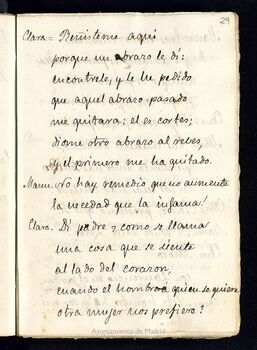 29
Clara = Reñisteme aquí
porque un abrazo le dí:
encontrele, y le he pedido
que aquel abrazo pasado
me quitara: él es cortés;
diome otro abrazo al reves,
y el primero me ha quitado.
Mam. No hay remedio que no aumente
la necedad que la infama!
Clara. Dí padre ¿ como se llama
una cosa que se siente
al lado del corazon,
cuando el hombre a quien se quiere
otra mujer nos prefiere?
Ayuntamiento de Madrid